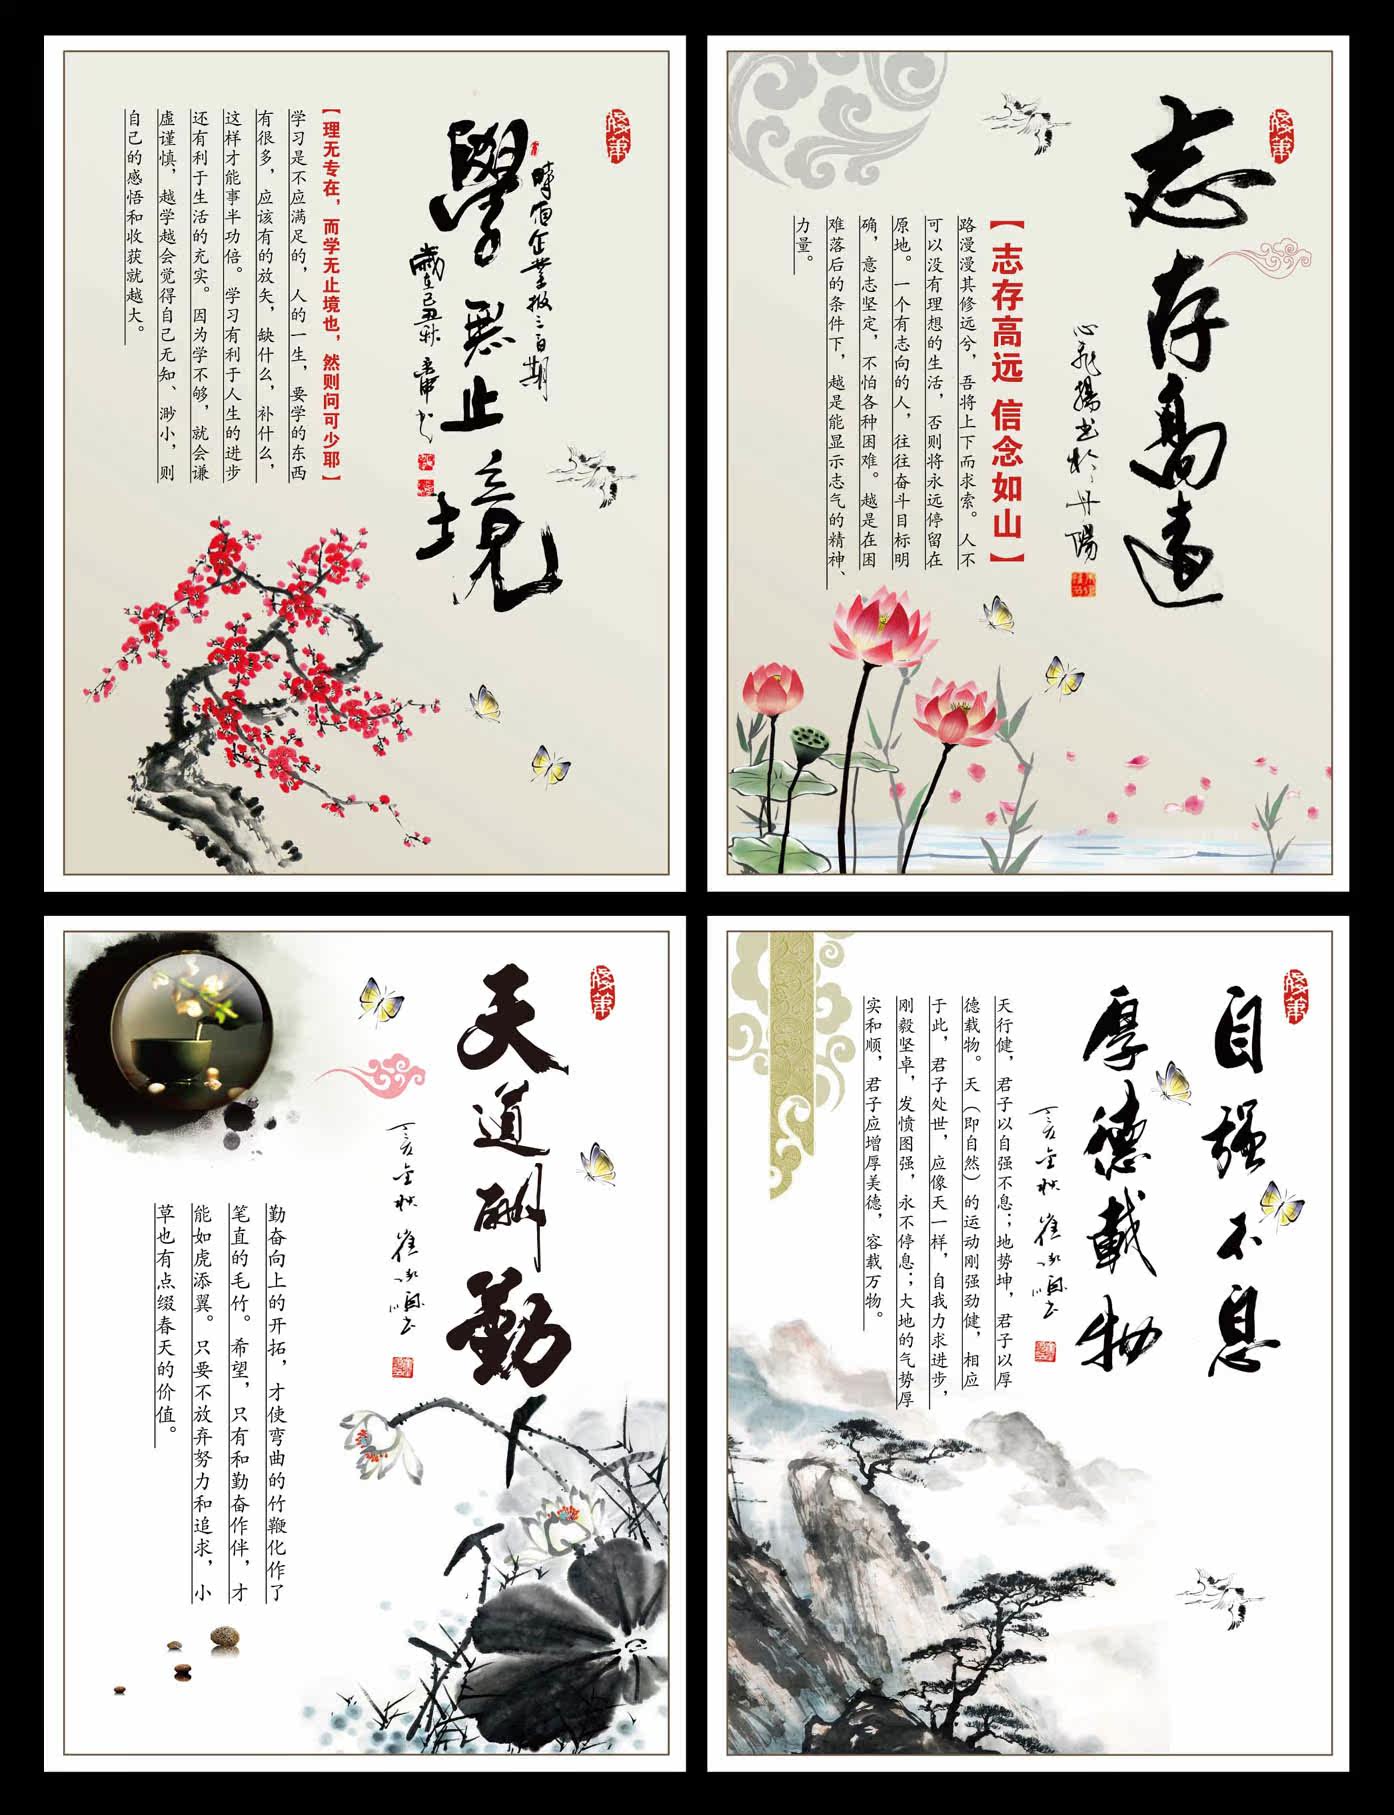 學無止境
時值企業报三百期
歲在己丑秋
【理无专在，而学无止境也，然则问可少耶】
学习是不应满足的，人的一生，要学的东西
有很多，应该有的放矢，缺什么，补什么，
这样才能事半功倍。学习有利于人生的进步
还有利于生活的充实。因为学不够，就会谦
虚谨慎，越学越会觉得自己无知、渺小，则
自己的感悟和收获就越大。
志存高遠
心飛揚书於丹陽
【志存高远 信念如山】
路漫漫其修远兮，吾将上下而求索。人不
可以没有理想的生活，否则将永远停留在
原地。一个有志向的人，往往奋斗目标明
确，意志坚定，不怕各种困难。越是在困
难落后的条件下，越是能显示志气的精神、
力量。
天道酬勤
丁亥金秋
勤奋向上的开拓，才使弯曲的竹鞭化作了
笔直的毛竹。希望，只有和勤奋作伴，才
能如虎添翼。只要不放弃努力和追求，小
草也有点缀春天的价值。
自强不息
厚德載物
丁亥金秋
天行健，君子以自强不息；地势坤，君子以厚
德载物。天（即自然）的运动刚强劲健，相应
于此，君子处世，应像天一样，自我力求进步，
刚毅坚卓，发愤图强，永不停息；大地的气势厚
实和顺，君子应增厚美德，容载万物。